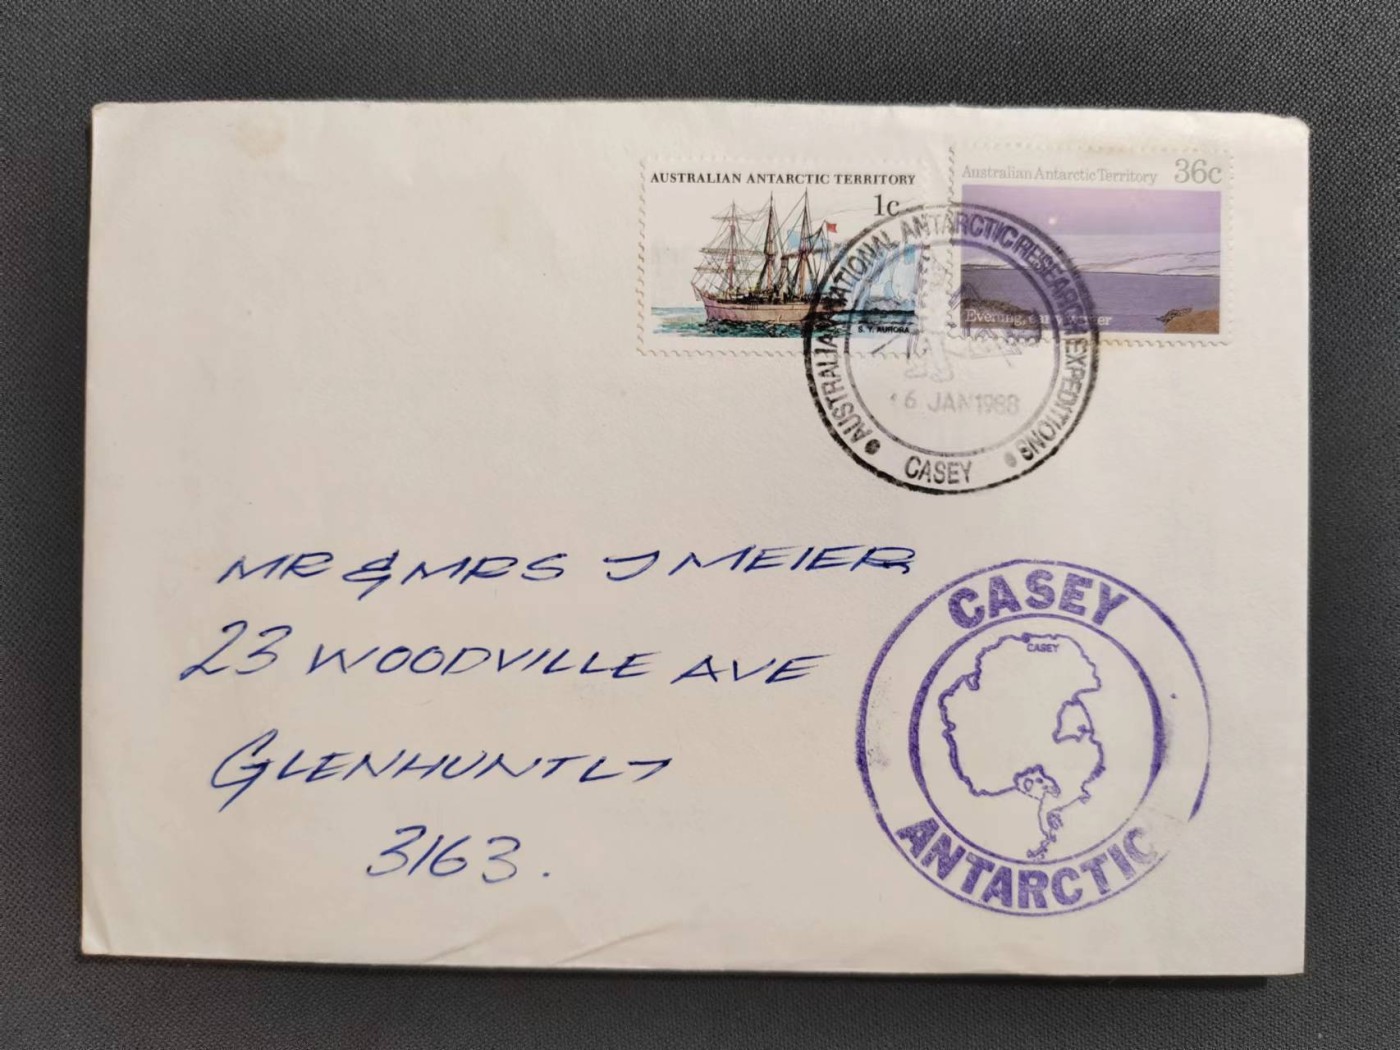 AUSTRALIAN ANTARCTIC TERRITORY
1c
S. Y. AURORA
Australian Antarctic Territory 36c
Evening,
AUSTRALIAN NATIONAL ANTARCTIC RESEARCH EXPEDITIONS
6 JAN 1988
CASEY
MR & MRS J MEIER
23 WOODVILLE AVE
GLENHUNTLY
3163.
CASEY
CASEY
ANTARCTIC